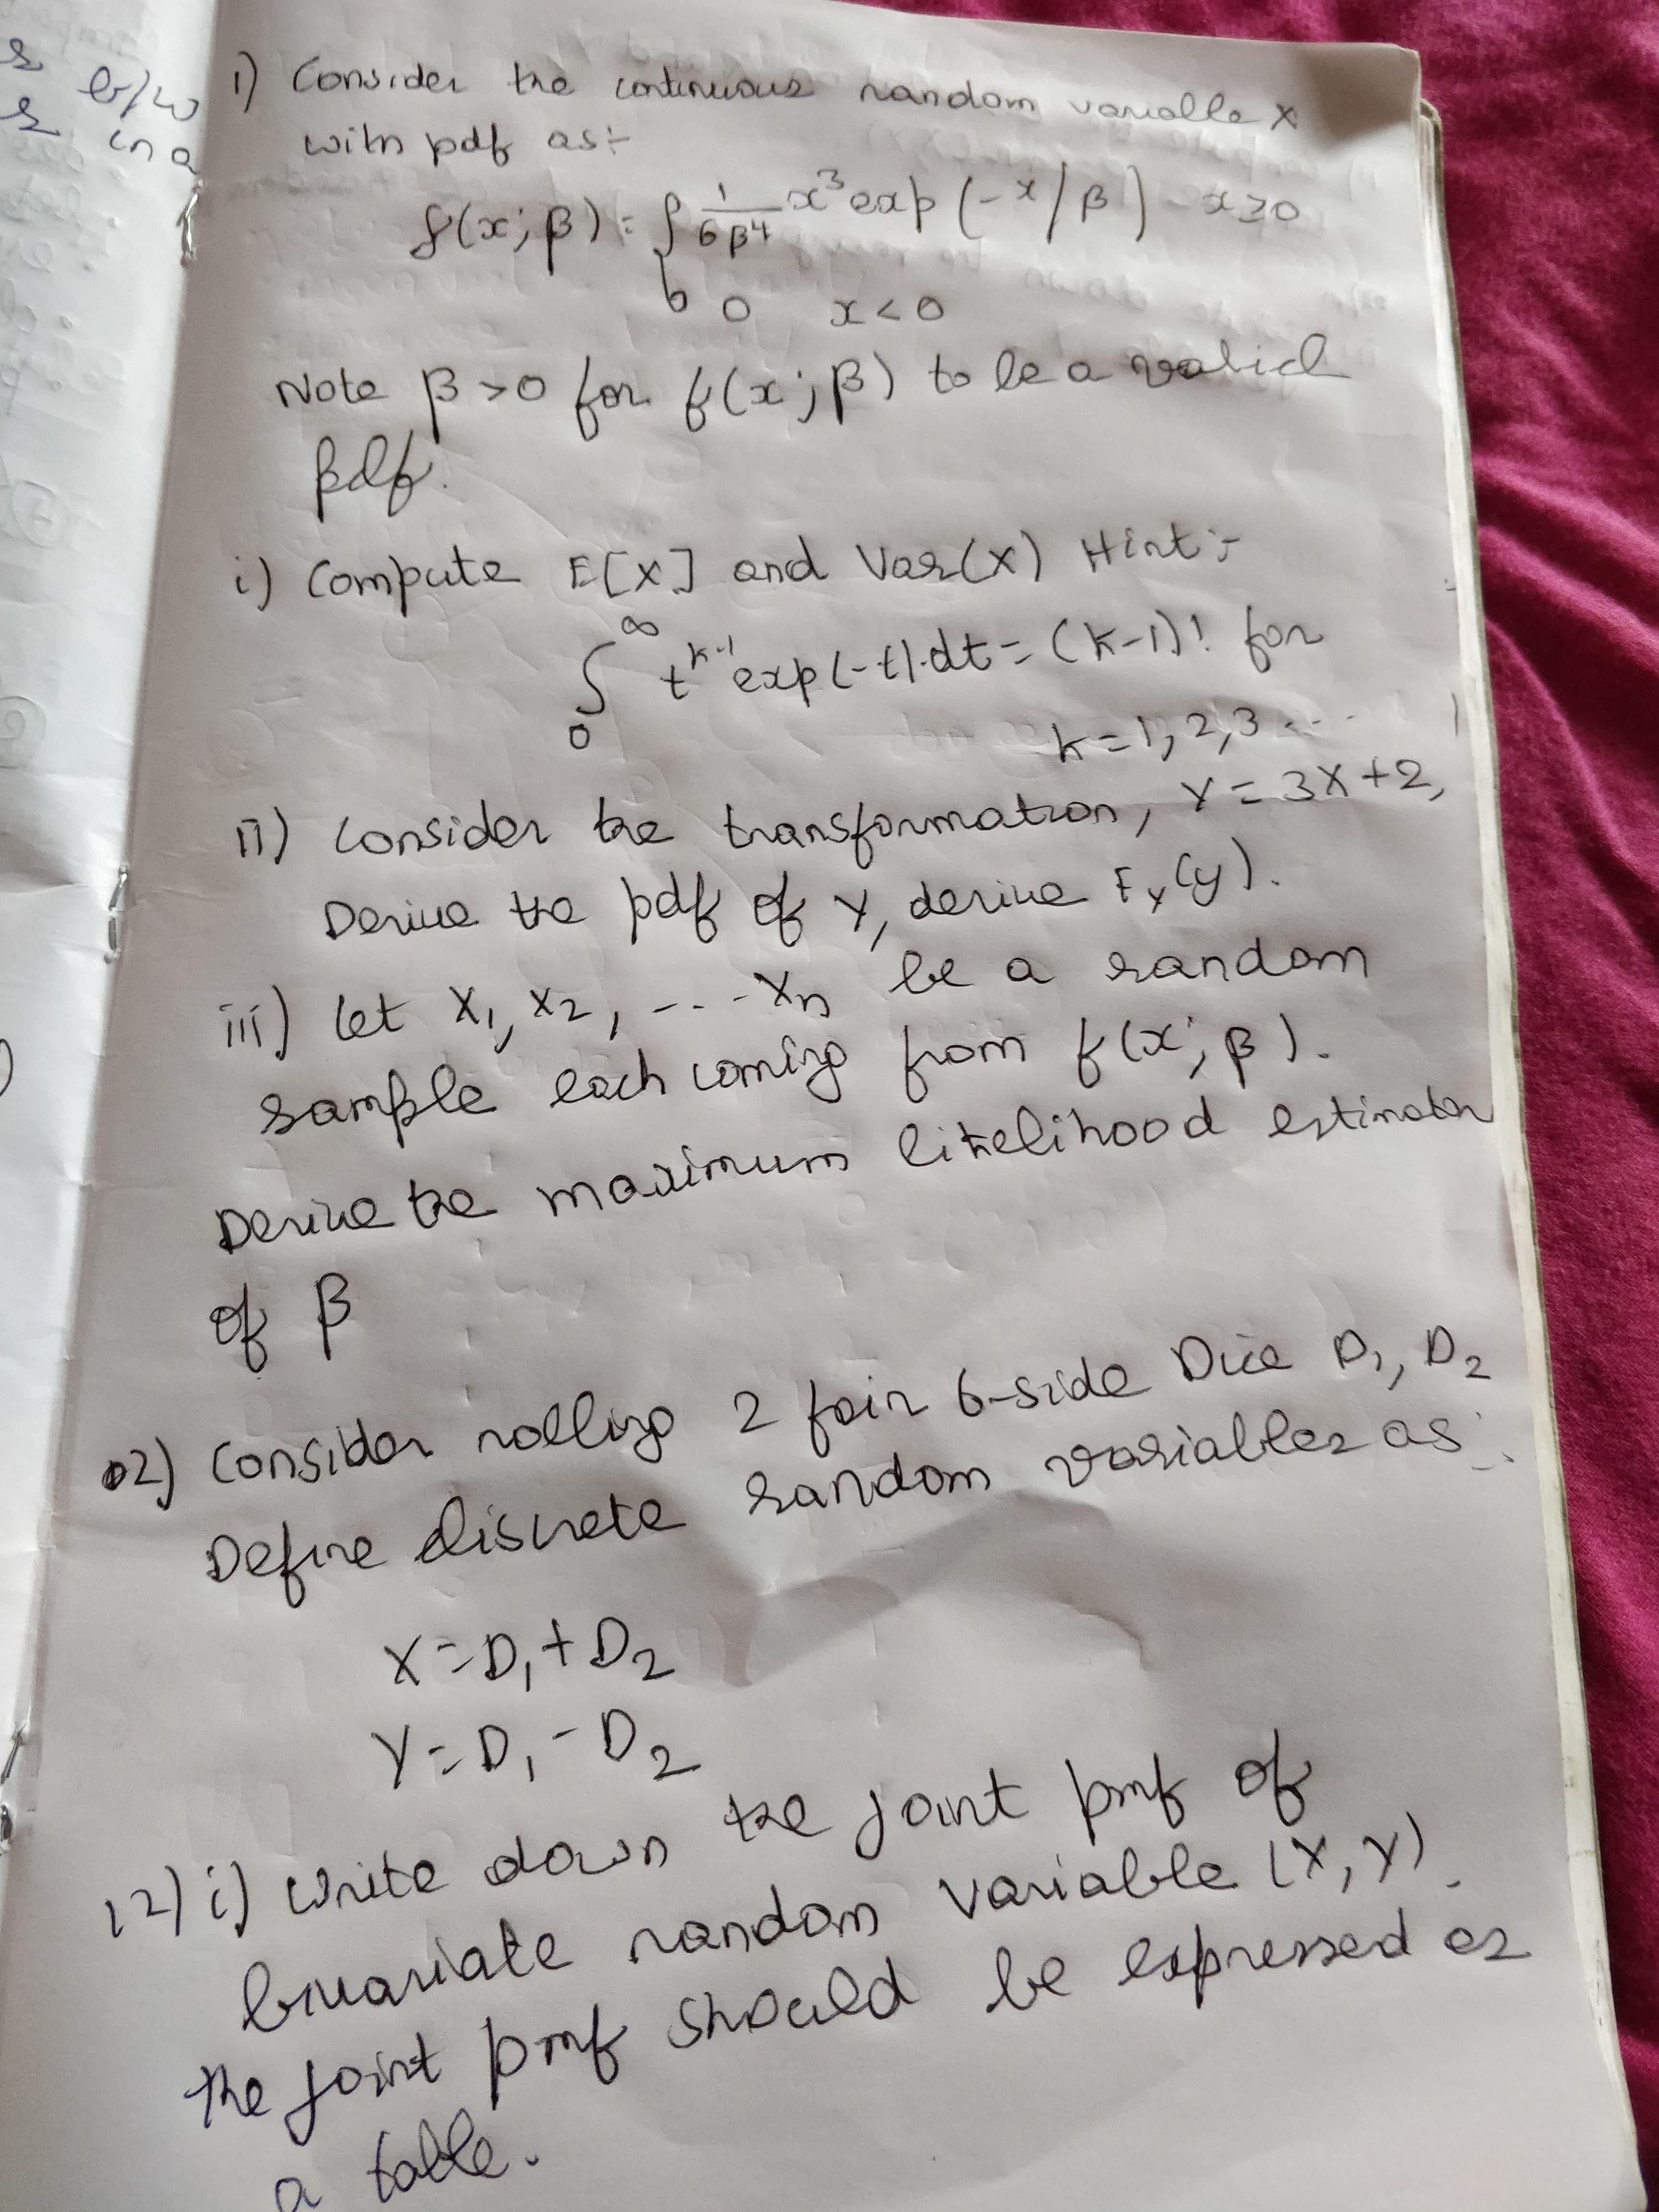 s b/w
s in a
1) Consider the continuous random variable X
with pdf as:-
f(x;β) = { 1/6β⁴ x³ exp(-x/β) x≥0
0 x<0
Note β>0 for f(x;β) to be a valid
pdf.
i) Compute E[X] and Var(X) Hint:-
∫₀^∞ t^(k-1) exp(-t).dt = (k-1)! for
k=1,2,3...
ii) Consider the transformation, Y = 3X+2,
Derive the pdf of Y, derive F_Y(y).
iii) Let X₁, X₂, ---- Xn be a random
sample each coming from f(x;β).
Derive the maximum likelihood estimator
of β
02) Consider rolling 2 fair 6-side Dice D₁, D₂
Define discrete random variables as:
X=D₁+D₂
Y=D₁-D₂
12) i) Write down the joint pmf of
bivariate random variable (X,Y).
The joint pmf should be expressed as
a table.